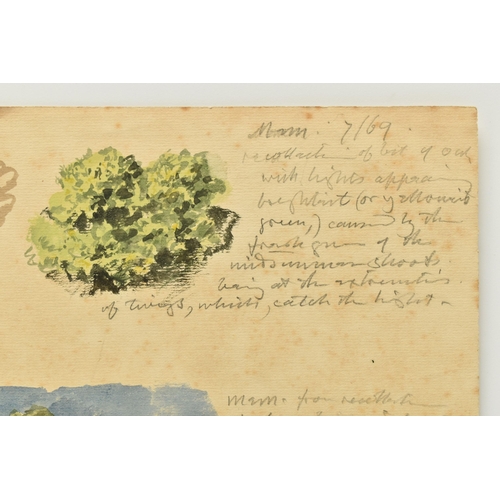 Mem. 7/69.
recollection of bit of oak
with lights appear
brightest (or yellowish
green,) caused by the
fresh green of the
midsummer shoots
being at the extremities
of twigs, which, catch the light.
Mem. from recollection